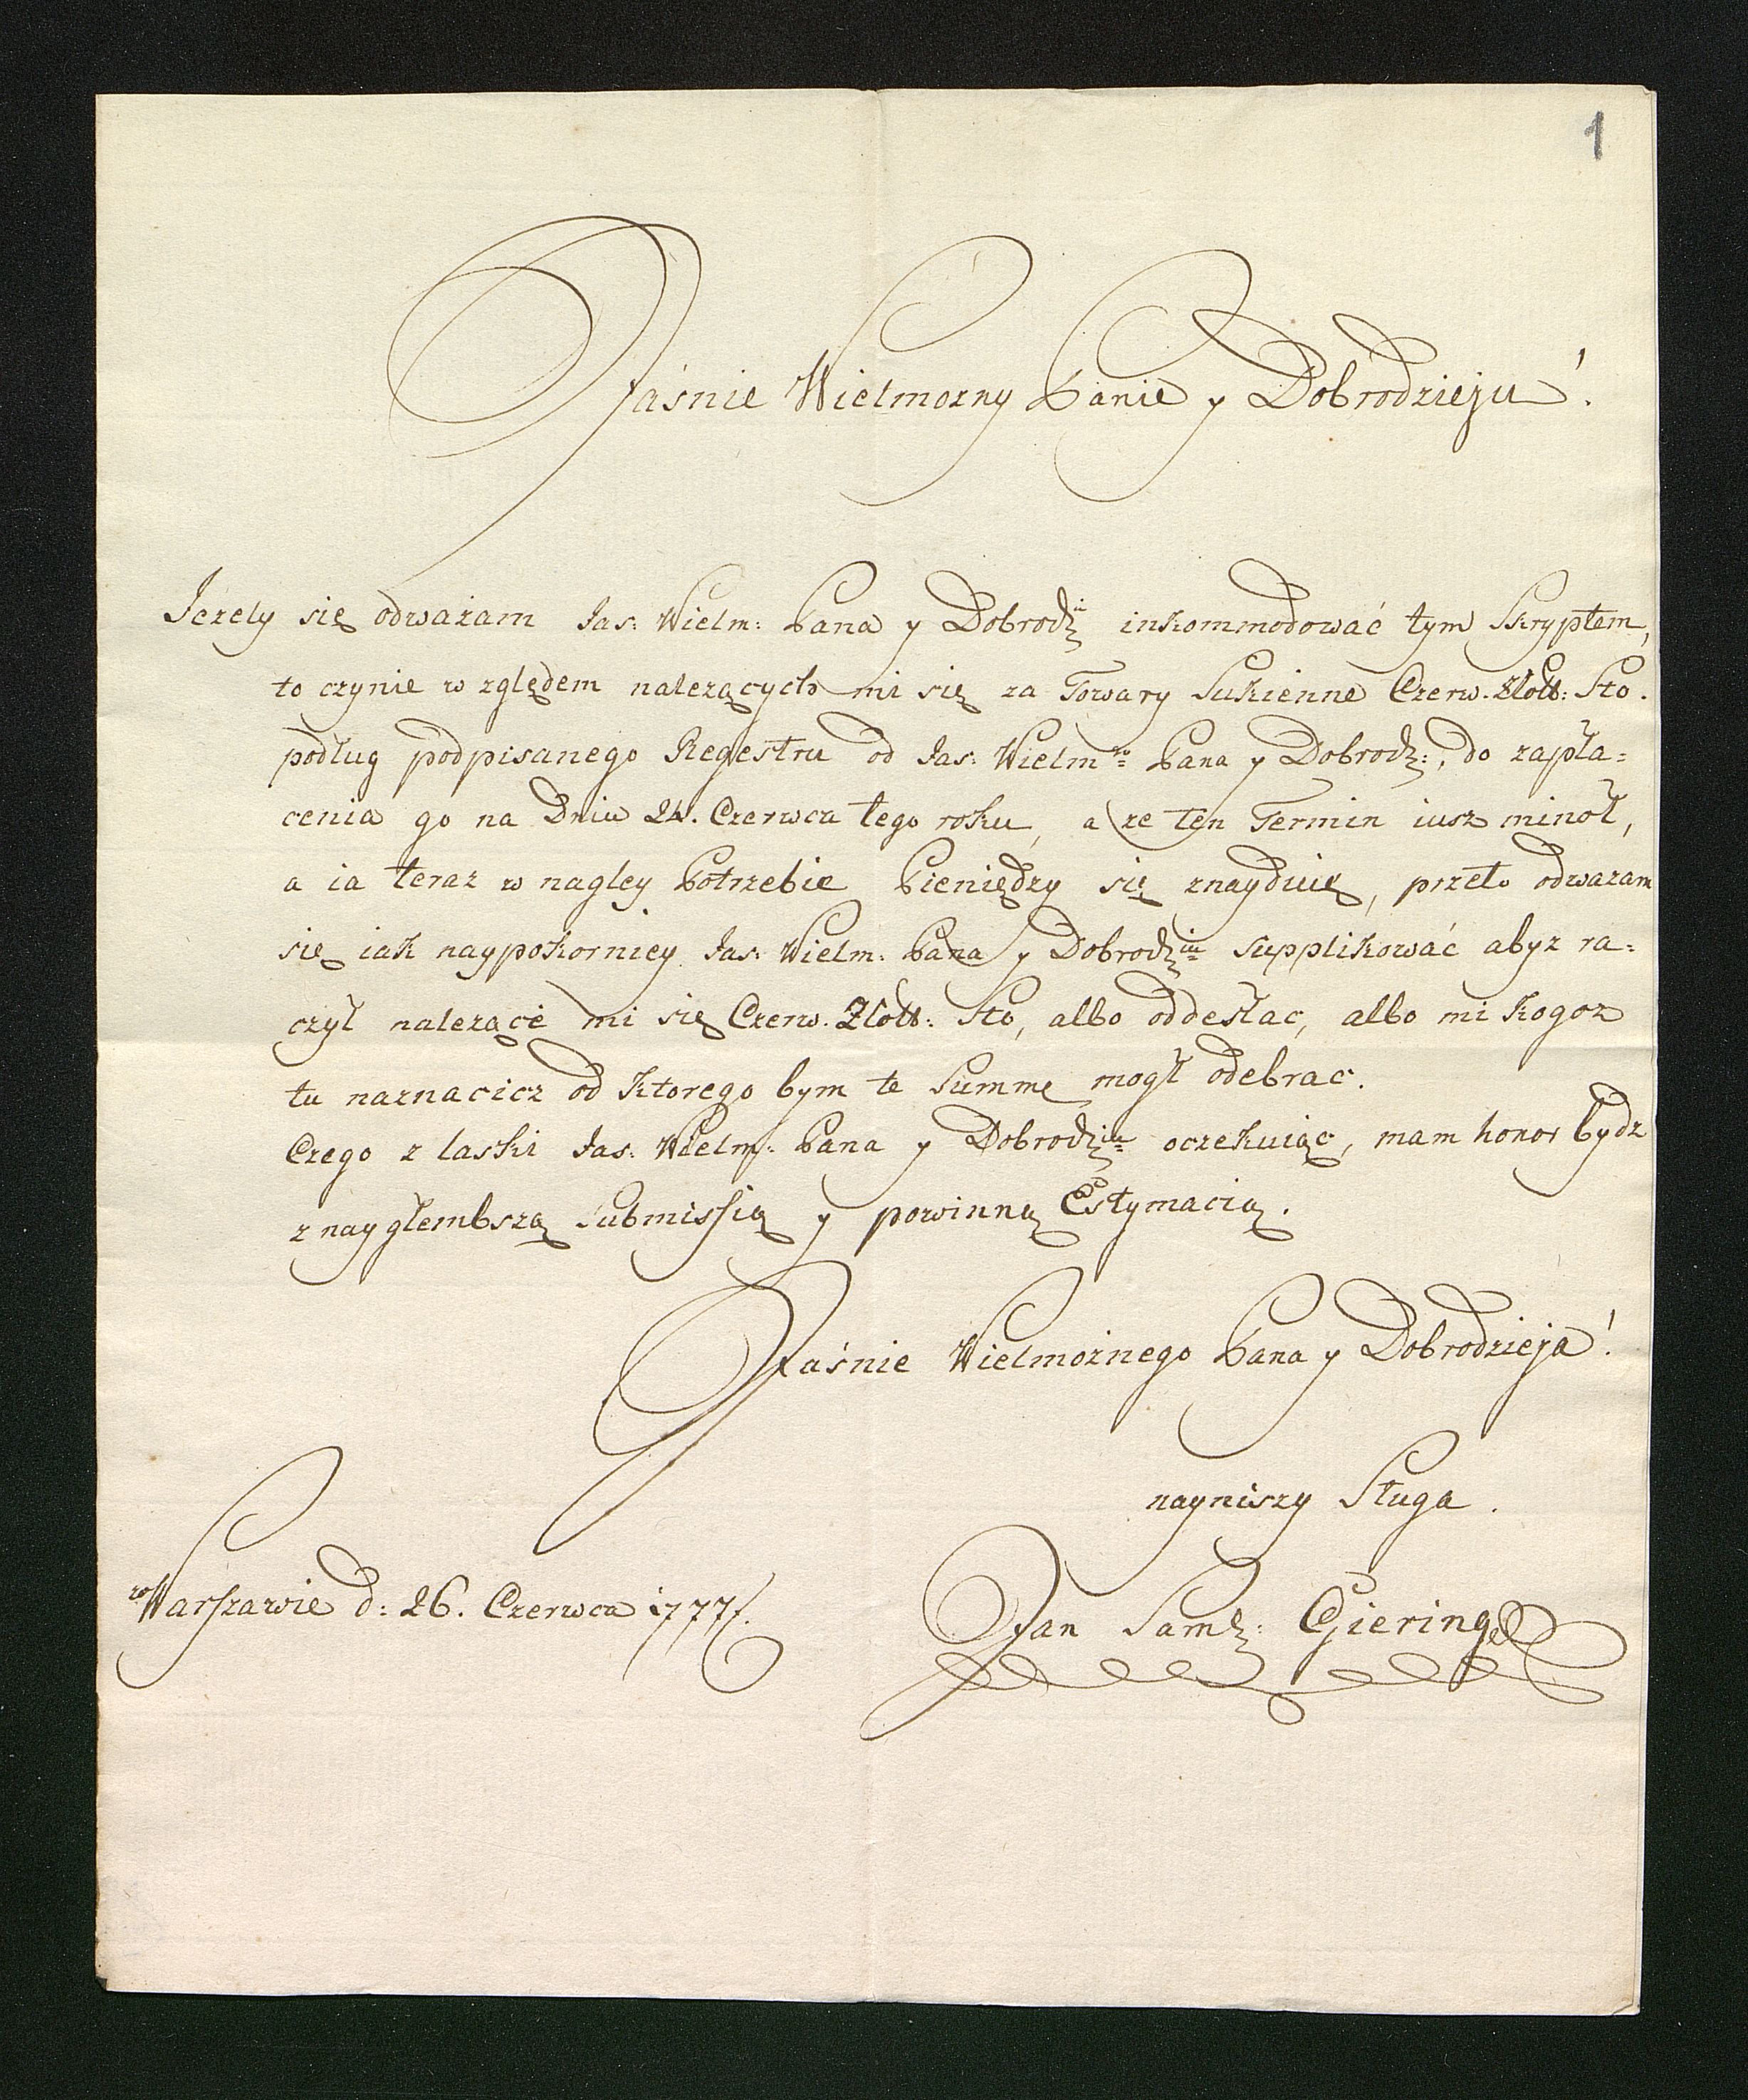 1
Jaśnie Wielmozny Panie y Dobrodzieju!
Jezely się odważam Jas: Wielm: Pana y Dobrodz<sup>ia</sup> inkommodować tym Skryptem,
to czynie w zględem nalezących mi się za Towary Sukienne Czerw. Złott: Sto.
podług podpisanego Regestru od Jas: Wielm<sup>go</sup> Pana y Dobrodz:, do zapła=
cenia go na Dniu 24. Czerwca tego roku, a ze ten Termin iusz minoł,
a ia teraz w nagley Potrzebie Pieniędzy się znayduię, przeto odwazam
się iak naypokorniey Jas: Wielm: Pana y Dobrodz<sup>ia</sup> supplikować abyz ra=
czył nalezące mi się Czerw. Złott: Sto, albo oddesłac, albo mi kogoz
tu naznacicz od ktorego bym te Summe mogł odebrac.
Czego z laski Jas: Wielm: Pana y Dobrodz<sup>ia</sup> oczekuiąc, mam honor bydz
z nayglembszą submissią y powinną Estymacią.
Jaśnie Wielmożnego Pana y Dobrodzieja!
nayniszy Sługa.
w Warszawie d: 26. Czerwca 1777.
Jan Saml: Giering